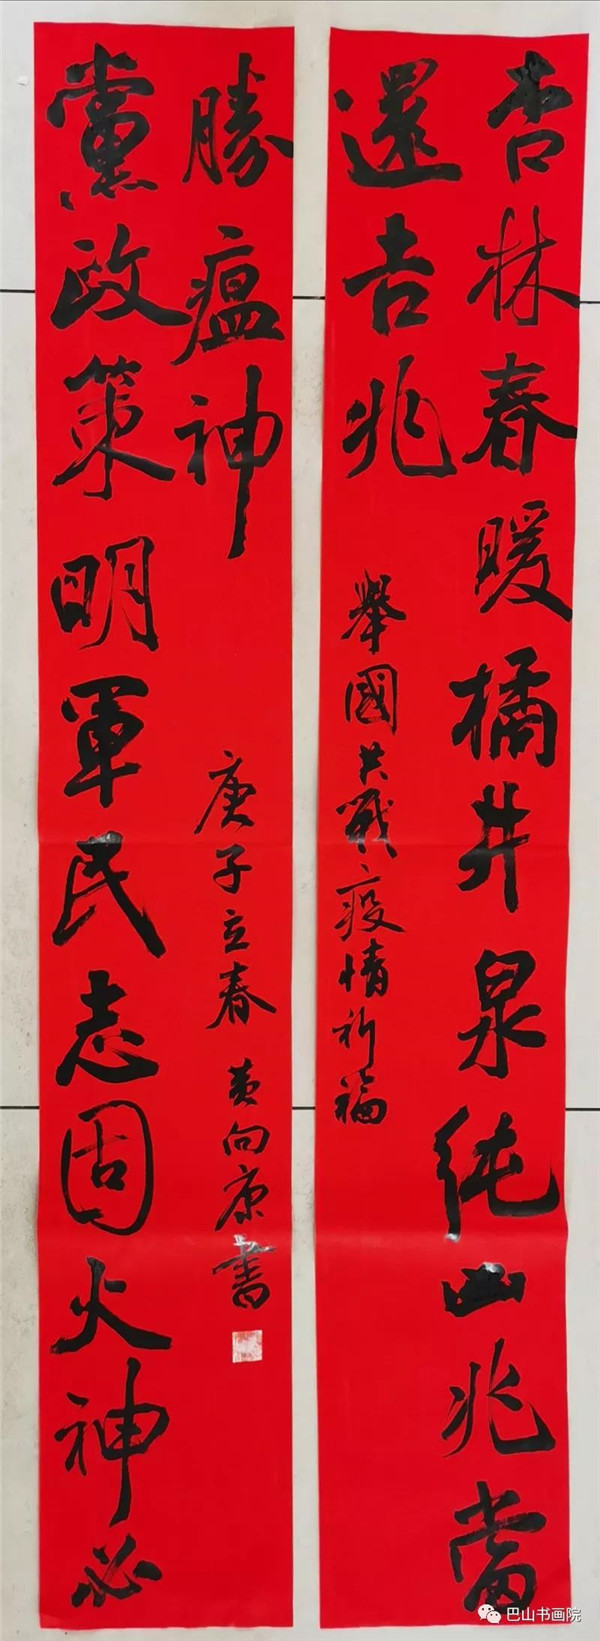 杏林春暖橘井泉純凶兆當
還吉兆
舉國共戰疫情祈福
黨政策明軍民志固火神必
勝瘟神
庚子立春 黄向康書
巴山书画院